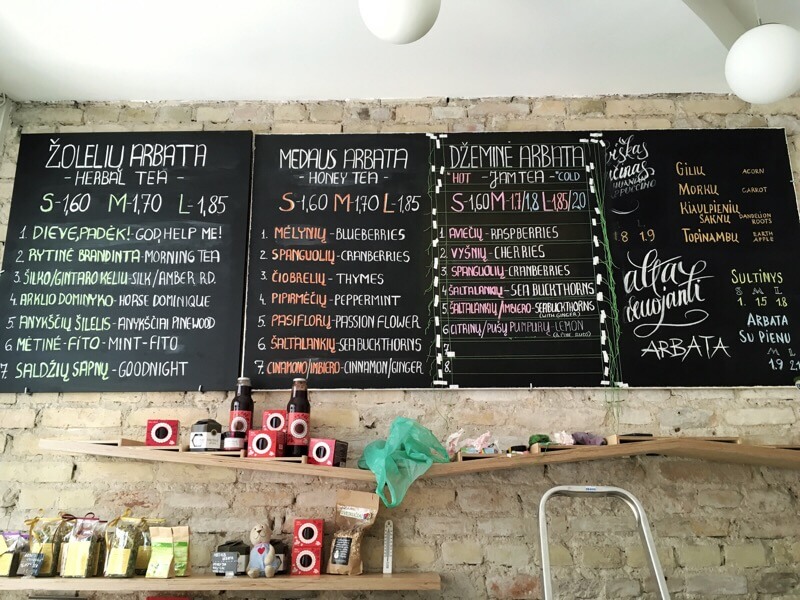 ŽOLELIŲ ARBATA
- HERBAL TEA -
S-1,60 M-1,70 L-1,85
1. DIEVE, PADĖK! GOD, HELP ME!
2. RYTINĖ BRANDINTA-MORNING TEA
3. ŠILKO/GINTARO KELIU-SILK/AMBER RD.
4. ARKLIO DOMINYKO-HORSE DOMINIQUE
5. ANYKŠČIŲ ŠILELIS-ANYKŠČIAI PINEWOOD
6. METINĖ-FITO-MINT-FITO
7. SALDŽIŲ SAPNŲ-GOODNIGHT
MEDAUS ARBATA
- HONEY TEA -
S-1,60 M-1,70 L-1,85
1. MĖLYNIŲ-BLUEBERRIES
2. SPANGUOLIŲ-CRANBERRIES
3. ČIOBRELIŲ-THYMES
4. PIPIRMĖČIŲ-PEPPERMINT
5. PASIFLORŲ-PASSION FLOWER
6. ŠALTALANKIŲ-SEABUCKTHORNS
7. CINAMONO/IMBIERO-CINNAMON/GINGER
DŽEMINE ARBATA
"HOT -JAM TEA- "COLD
S-1,60 M-1.7/1.8 L-1.85/2.0
1. AVIEČIŲ-RASPBERRIES
2. VYŠNIŲ-CHERRIES
3. SPANGUOLIŲ-CRANBERRIES
4. ŠALTALANKIŲ-SEABUCKTHORNS
5. ŠALTALANKIŲ/IMBIERO-SEABUCKTHORNS
(WITH GINGER)
6. CITRINŲ/PUŠŲ PUMPURŲ-LEMON
8.
GILIŲ ACORN
MORKŲ CARROT
KIAULPIENIŲ ŠAKNŲ DANDELION ROOTS
TOPINAMBŲ EARTH APPLE
1.8 1.9
ARBATA
SULTINYS
S M L
1. 1.5 1.8
ARBATA
SU PIENU
M L
1.9